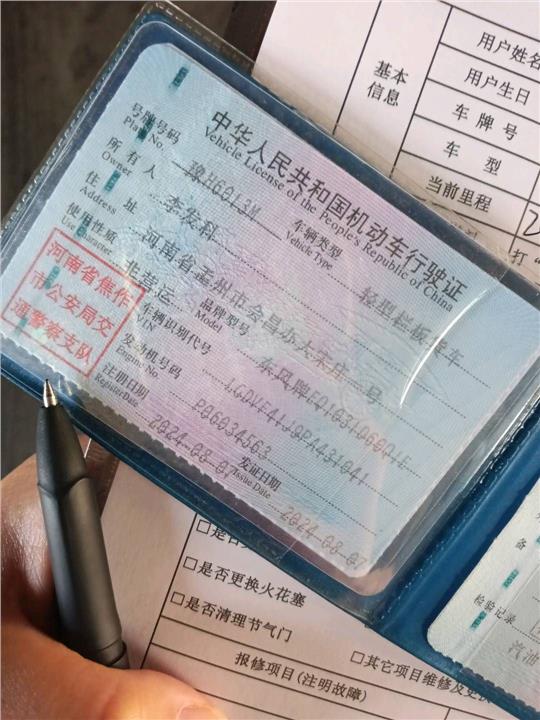 中华人民共和国机动车行驶证
Vehicle License of the People's Republic of China
号牌号码
Plate No.
豫H6013M
车辆类型
Vehicle Type
轻型栏板货车
所有人
Owner
李发科
住址
Address
河南省孟州市会昌办大朱庄一号
使用性质
Use Character
非营运
品牌型号
Model
河南省焦作
市公安局交
通警察支队
车辆识别代号
VIN
发动机号码
Engine No.
P06034563
注册日期
Register Date
2024-08-07
发证日期
Issue Date
2024-08-07
基本
信息
用户姓名
用户生日
车牌号
车型
当前里程
打
备
检验记录
汽油
□是否更换火花塞
□是否清理节气门
□其它项目维修及更换
报修项目(注明故障)